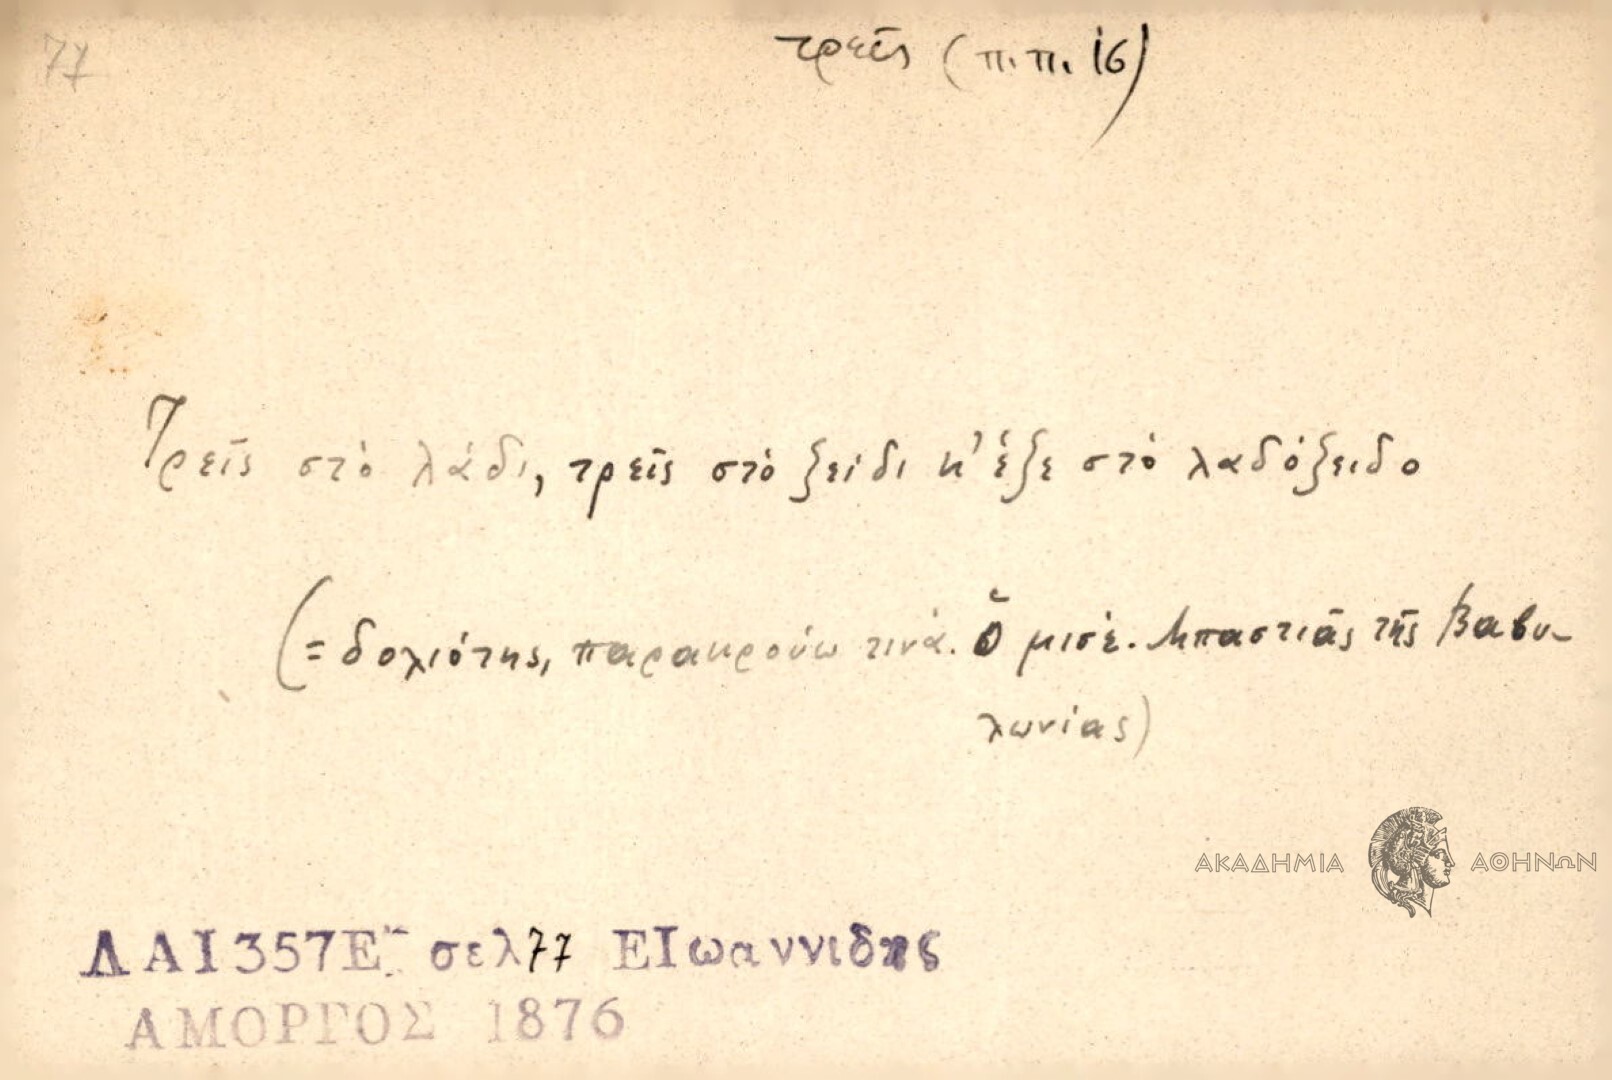 77
τρεῖς (π.π. 16)
Τρεῖς στὸ λάδι, τρεῖς στὸ ξείδι κ' ἕξε στὸ λαδόξειδο
(= δολιότης, παρακρούω τινά. Ὁ μισὲ. Μπαστιᾶς τῆς Βαβυ-
λωνίας)
ΑΚΑΔΗΜΙΑ ΑΘΗΝΩΝ
ΛΑΙ357Ε σελ77 ΕΙωαννιδης
ΑΜΟΡΓΟΣ 1876